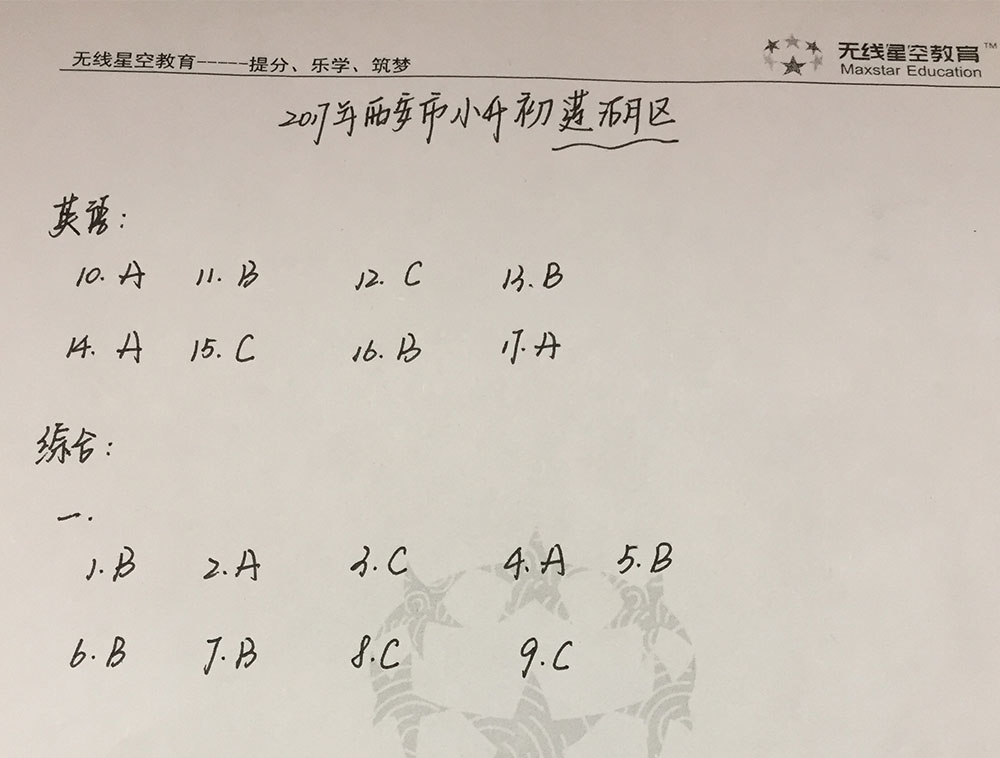 无线星空教育-----提分、乐学、筑梦
无线星空教育™
Maxstar Education
2017年西安市小升初莲湖区
英语:
10. A 11. B 12. C 13. B
14. A 15. C 16. B 17. A
综合:
一.
1. B 2. A 3. C 4. A 5. B
6. B 7. B 8. C 9. C